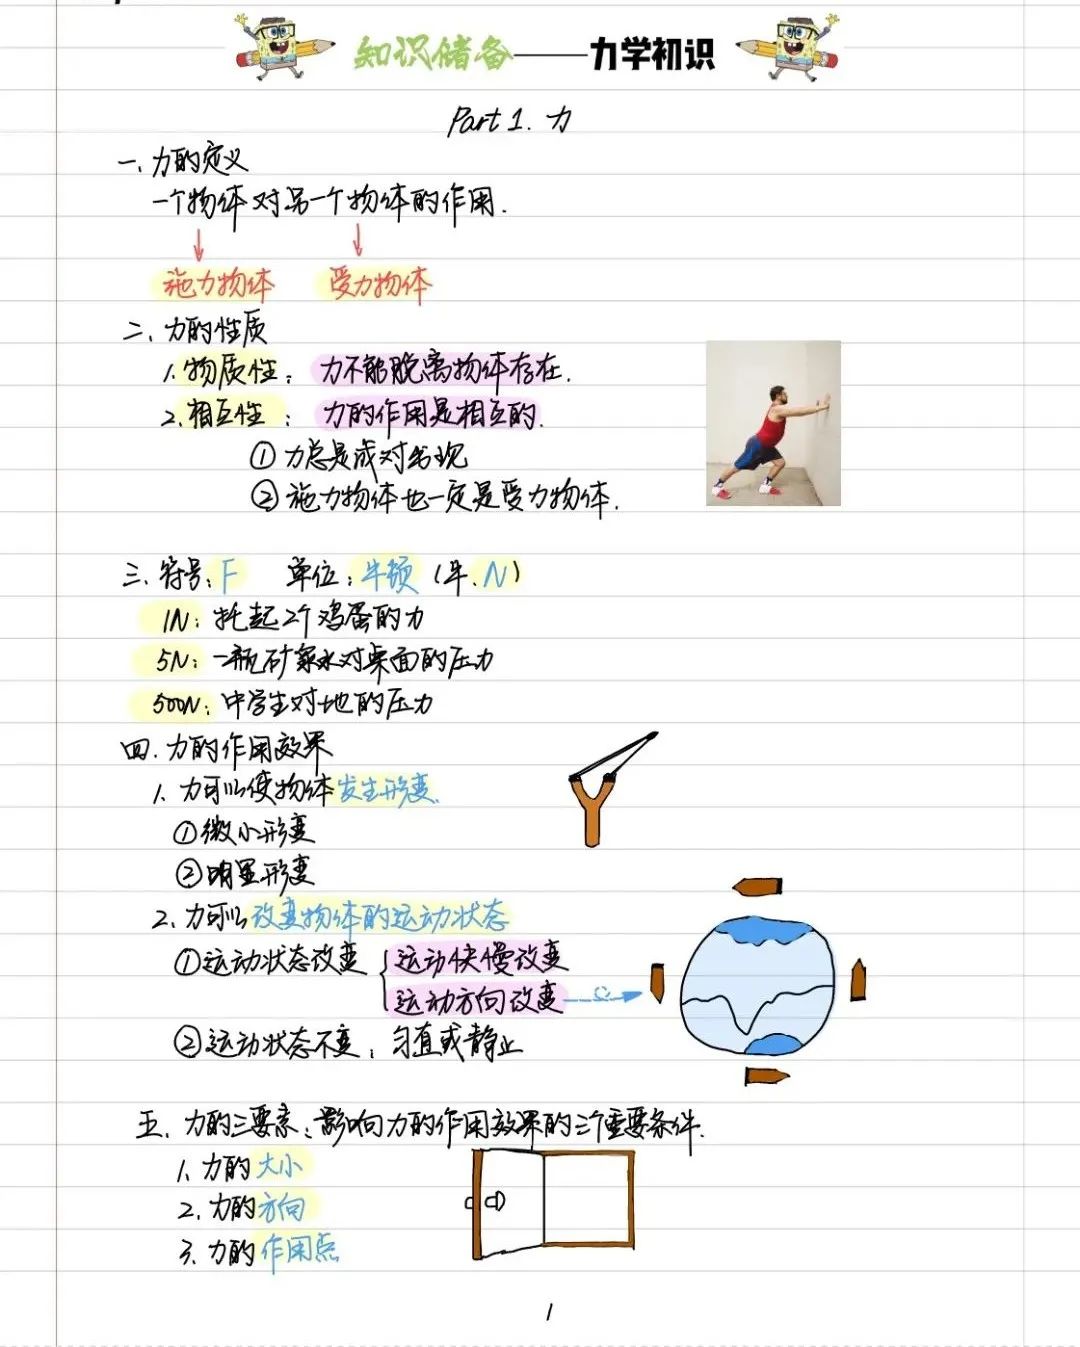 知识储备——力学初识
Part 1. 力
一、力的定义
一个物体对另一个物体的作用.
施力物体 受力物体
二、力的性质
1. 物质性: 力不能脱离物体存在.
2. 相互性: 力的作用是相互的.
① 力总是成对出现
② 施力物体也一定是受力物体.
三、符号: F 单位: 牛顿 (牛. N)
1N: 托起2个鸡蛋的力
5N: 一瓶矿泉水对桌面的压力
500N: 中学生对地的压力
四. 力的作用效果
1. 力可以使物体发生形变.
①微小形变
②明显形变
2. 力可以改变物体的运动状态
①运动状态改变 { 运动快慢改变
运动方向改变
②运动状态不变: 匀直或静止
五. 力的三要素: 影响力的作用效果的三个重要条件.
1. 力的大小
2. 力的方向
3. 力的作用点
1